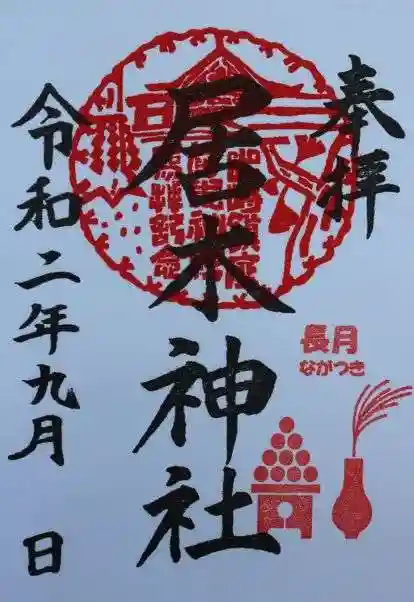 奉拝
居木神社
令和二年九月 日
長月
ながつき